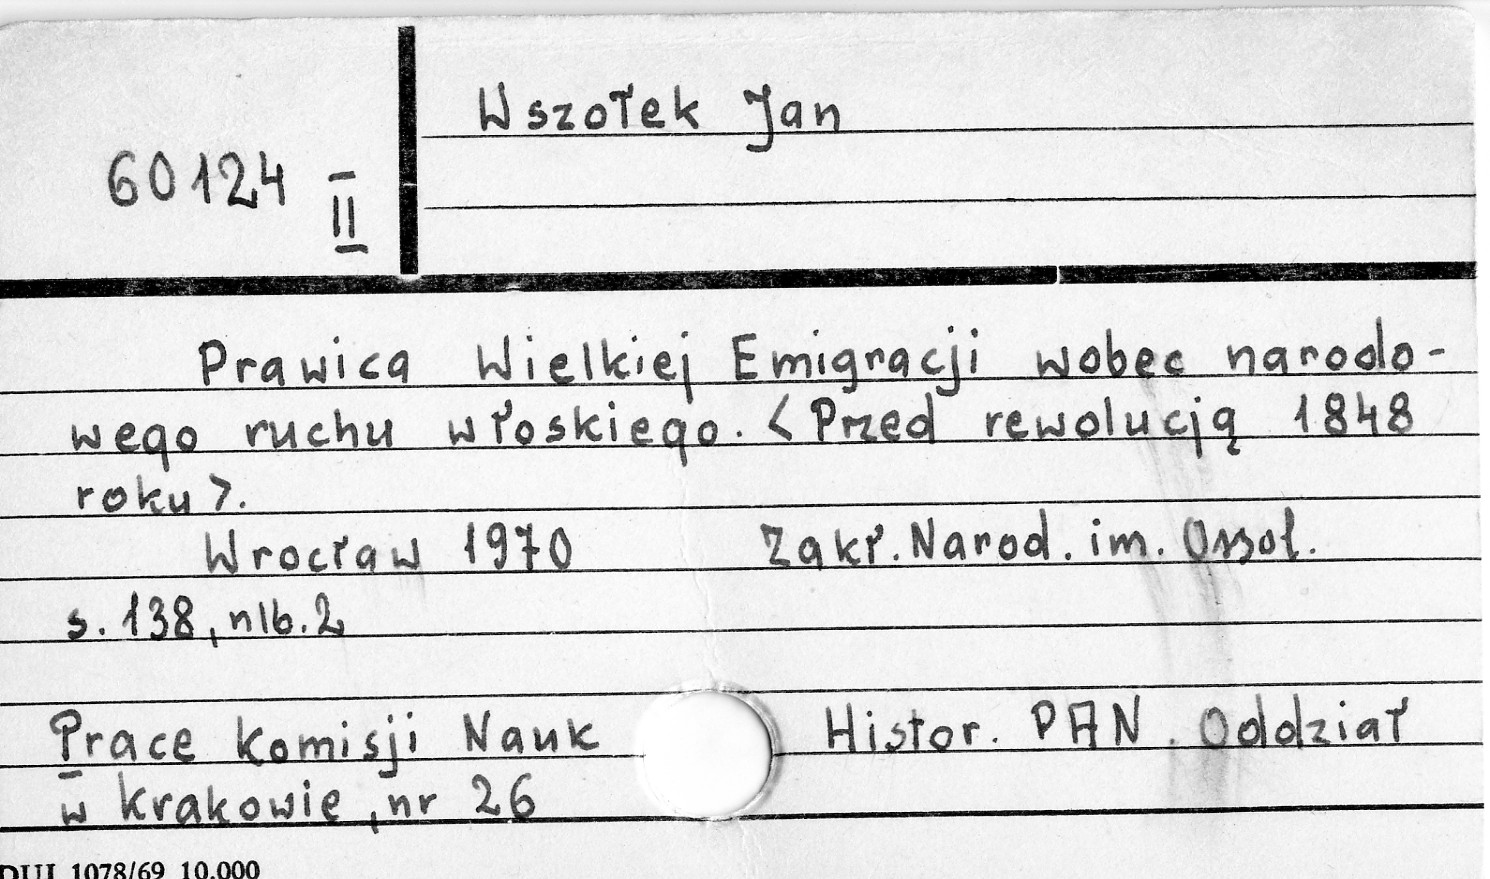 Wszołek Jan
60124 II
Prawica Wielkiej Emigracji wobec narodo-
wego ruchu włoskiego. <Przed rewolucją 1848
roku>.
Wrocław 1970 Zakł. Narod. im. Ossol.
s. 138, nlb. 2
Prace Komisji Nauk Histor. PAN. Oddział
w Krakowie, nr 26
DUJ 1078/69 10.000